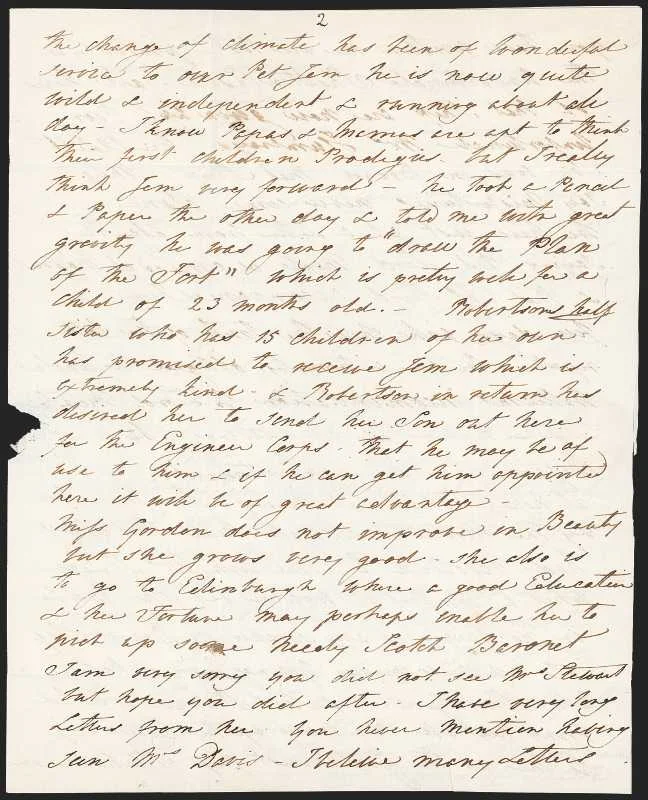 2
the change of climate has been of wonderful
service to our Pet Jem he is now quite
wild & independent & running about all
day - I know Papas & Mamas are apt to think
their first children Prodigies but I really
think Jem very forward - he took a Pencil
& Paper the other day & told me with great
gravity he was going to "draw the Plan
of the Fort" which is pretty well for a
child of 23 months old. - Robertsons half
sister who has 15 children of her own
has promised to receive Jem which is
extremely kind - & Robertson in return has
desired her to send her Son out here
for the Engineer Corps - that he may be of
use to him & if he can get him appointed
here it will be of great advantage -
Miss Gordon does not improve in Beauty
but she grows very good - she also is
to go to Edinburgh where a good Education
& her Fortune may perhaps enable her to
pick up some needy Scotch Baronet
I am very sorry you did not see Mrs Stewart
but hope you did after - I have very long
Letters from her you never mention having
seen Mrs Davis - I believe many Letters